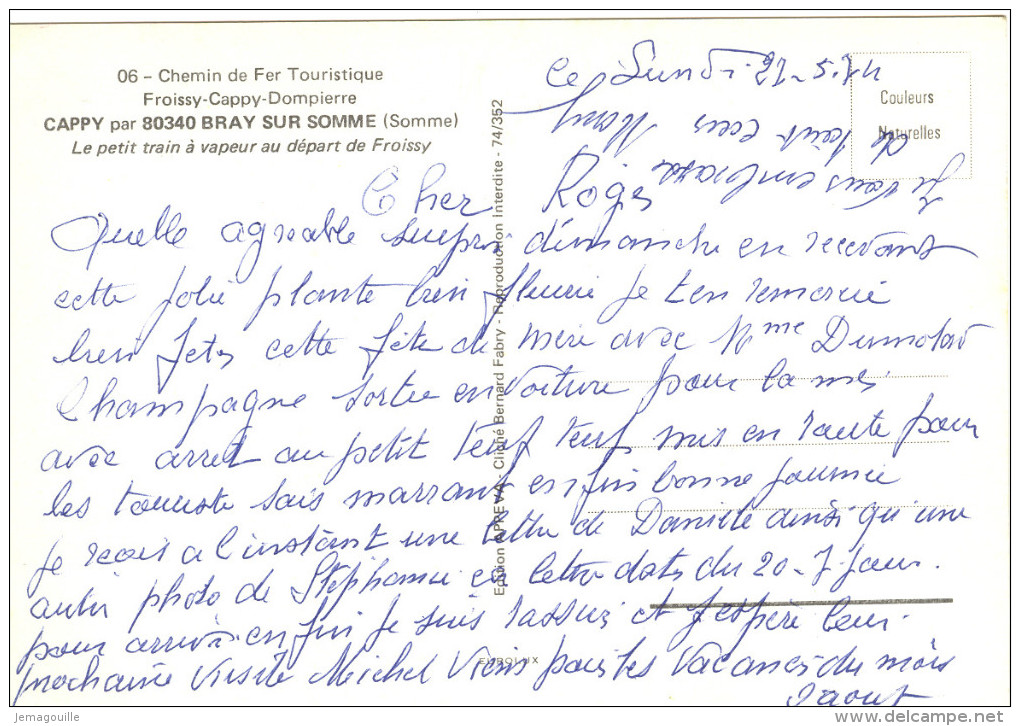 06 – Chemin de Fer Touristique
Froissy-Cappy-Dompierre
CAPPY par 80340 BRAY SUR SOMME (Somme)
Le petit train à vapeur au départ de Froissy
Edition APREVA - Cliché Bernard Fabry - Reproduction Interdite - 74/352
Couleurs
Naturelles
EUROLUX
Ce Lundi
Cher Roger
Quelle agreable dimanche en recevant
cette jolie plante bien fleurie je t'en remercie
bien cette fête de mere avec Mme
Champagne sortie en voiture pour la mer
avec arret au petit teuf teuf mis en route pour
les touriste sais marrant enfin bonne journée
Je recois a l'instant une lettre de Daniele ainsi qu'une
autre photo de Stephanie lettre date du 20 - 7 jours
pour arriver enfin je suis rassuré et j'espère leur
prochaine visite Michel pour les vacances du mois
d'aout
Je vous embrasse
de tout coeur